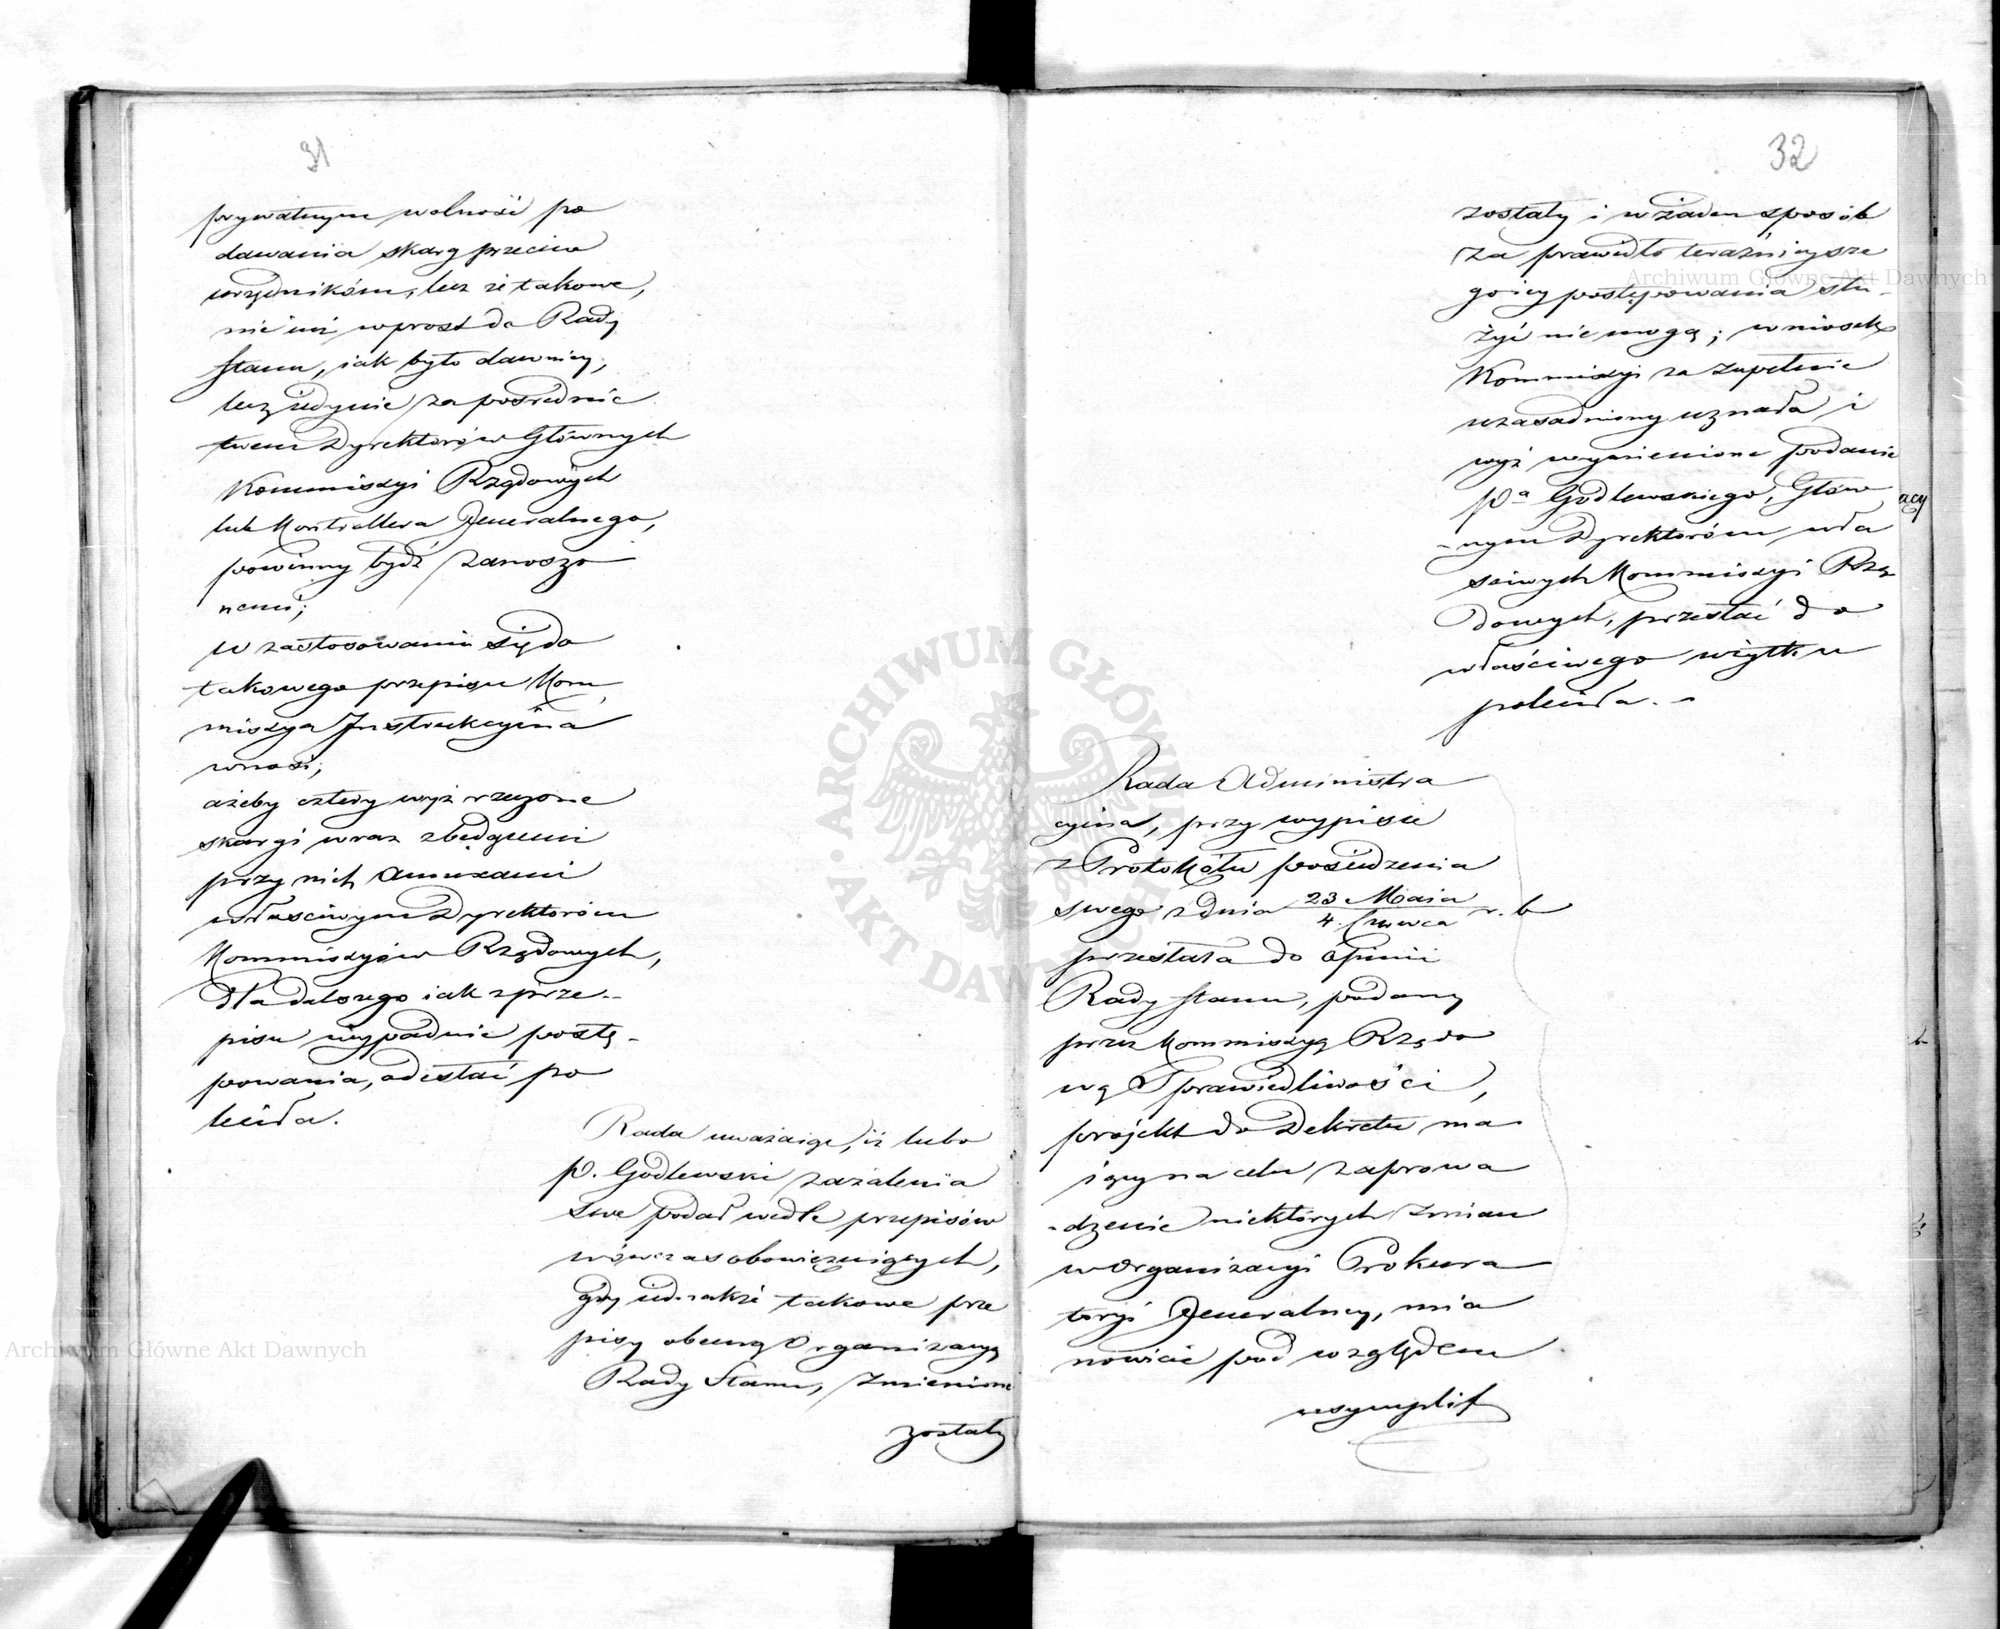 31
prywatnym wolność po
dawania skarg przeciw
urzędnikóm, lecz że takowe,
nie iuż wprost do Rady
Stanu, iak było dawniey,
lecz iedynie za pośrednic
twem Dyrektorów Głównych
Kommissyi Rządowych
lub Kontrollera Jeneralnego,
powinny bydź zanoszo
nemi;
w zastosowaniu się do
takowego przepisu Kom
missya Instrukcyina
wnosi;
ażeby cztery wyż rzeczone
skargi wraz z będącemi
przy nich annexami
właściwym Dyrektoróm
Kommissyiów Rządowych,
dla dalszego iak z prze-
pisu wypadnie postę-
powania, odesłać po
leciła.
Rada uważaiąc, iż lubo
P. Godlewski zażalenia
swe podał wedle przepisów
wówczas obowiązuiących,
gdy iednakże takowe prze
pisy obecną Organizacyą
Rady Stanu, zmienione
zostały
32
zostały i w żaden sposób
za prawidło teraźnieysze
go iey postępowania słu-
żyć nie mogą; wniosek
Kommissyi za zupełnie
uzasadniony uznała i
wyż wymienione podanie
Pa Godlewskiego, Głów
-nym Dyrektoróm wła
ściwych Kommissyi Rzą
dowych, przesłać do
właściwego użytku
poleciła. -
Rada Administra
cyina, przy wypisie
z Protokółu posiedzenia
swego z dnia 23 Maia / 4 Czerwca r. b
przesłała do Opinii
Rady Stanu, podany
przez Kommissyą Rządo
wą Sprawiedliwości,
projekt do Dekretu ma
iący na celu zaprowa
-dzenie niektórych zmian
w Organizacyi Prokura
toryi Jeneralney, mia
nowicie pod względem
usymplif
acy
ARCHIWUM GŁÓWNE AKT DAWNYCH
Archiwum Główne Akt Dawnych
Archiwum Główne Akt Dawnych